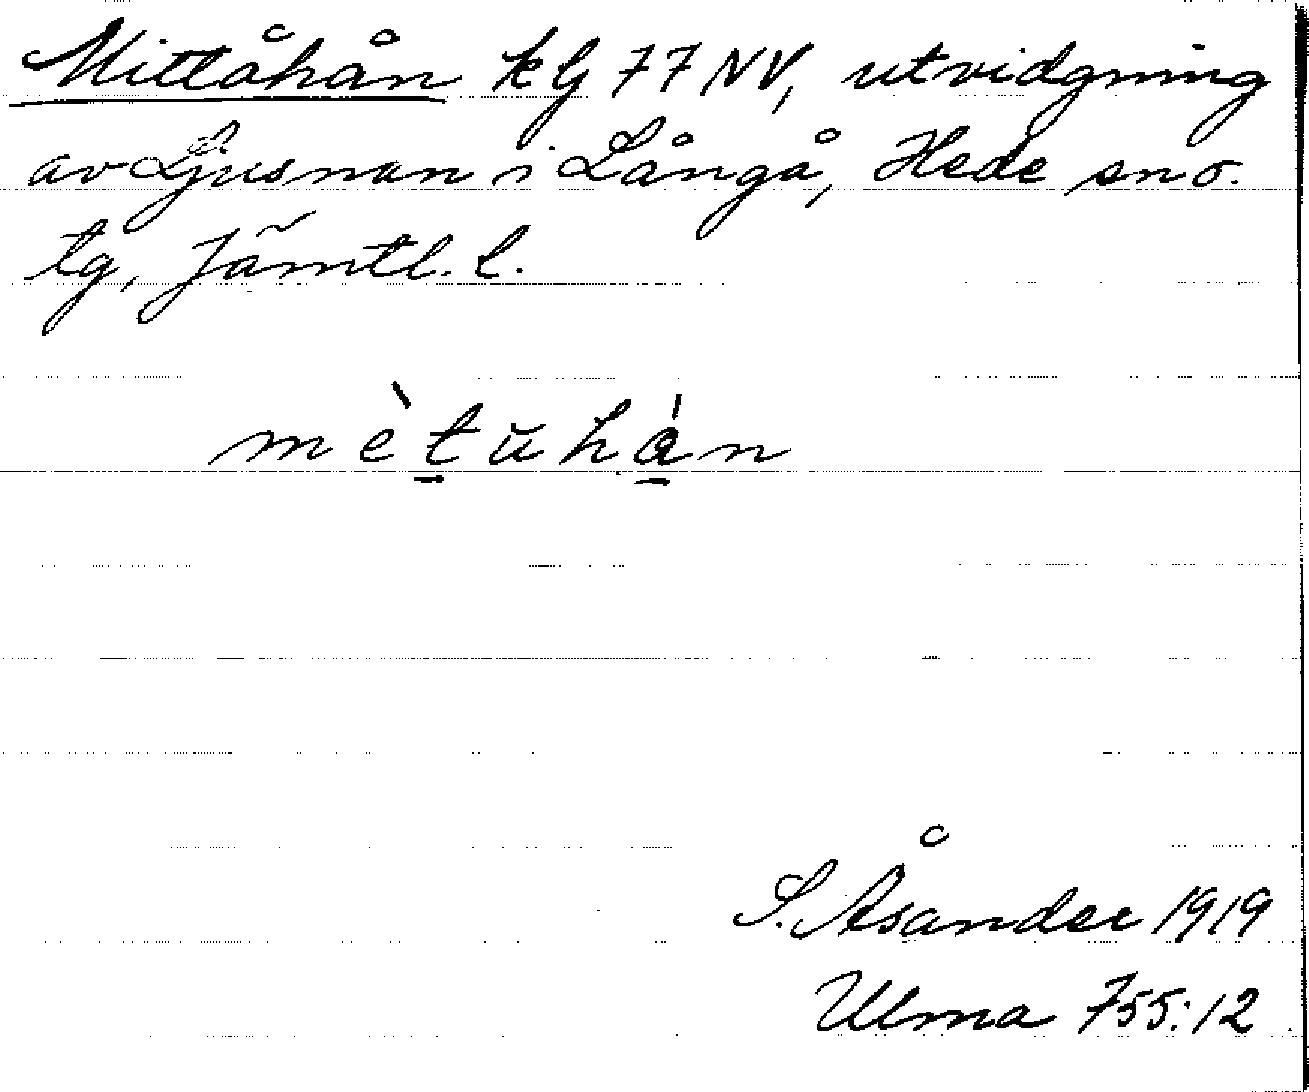 Mittåhån kg 77 NV, utvidgning
av Ljusnan i Långå, Hede sn o.
tg, Jämtl. l.
mètŭhån
S. Åsander 1919
Ulma 755:12